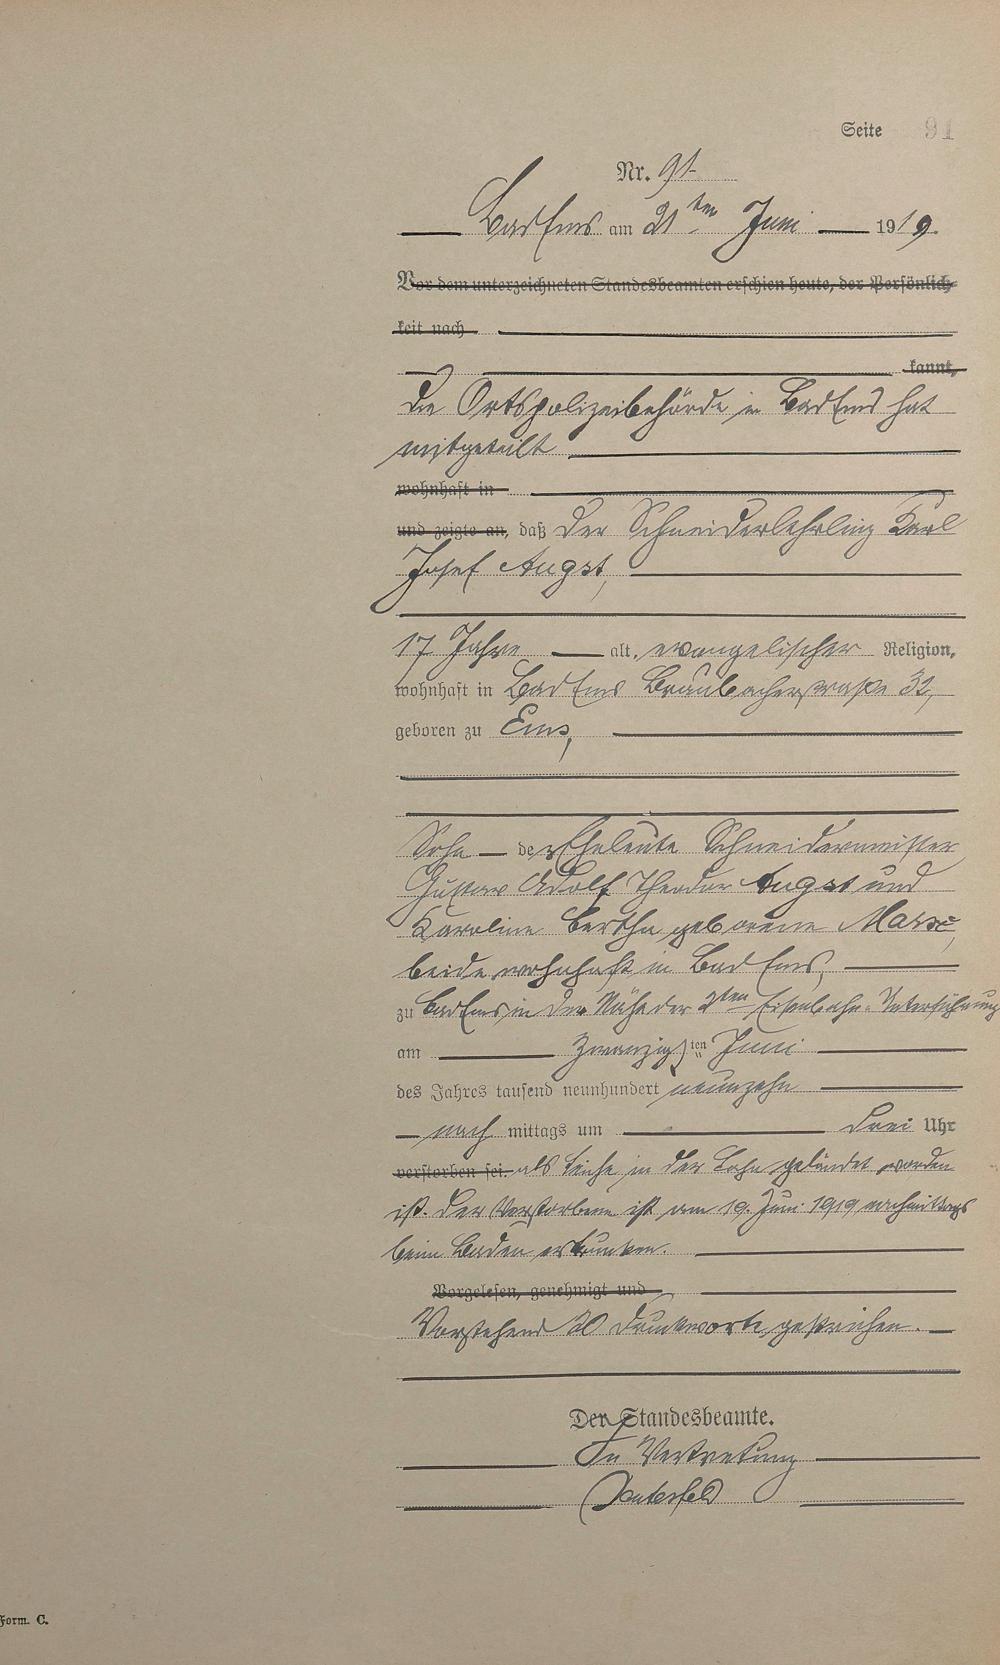 Seite 91
Nr. 91
Bad Ems am 21ten Juni 1919.
Vor dem unterzeichneten Standesbeamten erschien heute, der Persönlich-
keit nach
kannt,
Die Ortspolizeibehörde in Bad Ems hat
mitgeteilt
wohnhaft in
und zeigte an, daß der Schneiderlehrling Karl
Josef Augst,
17 Jahre alt, evangelischer Religion,
wohnhaft in Bad Ems Braubacherstraße 32,
geboren zu Ems,
Sohn der Eheleute Schneidermeister
Gustav Adolf Theodor Augst und
Karoline Bertha geborene
beide wohnhaft in Bad Ems,
zu Bad Ems in der Nähe der 2ten Eisenbahn-Unterführung
am Zwanzigsten Juni
des Jahres tausend neunhundert neunzehn
nach mittags um drei Uhr
verstorben sei. als Leiche in der Lahn geländet worden
ist. Der Verstorbene ist am 19. Juni 1919 nachmittags
beim Baden ertrunken.
Vorgelesen, genehmigt und
Vorstehend 20 Druckworte gestrichen.
Der Standesbeamte.
In Vertretung
Form. C.